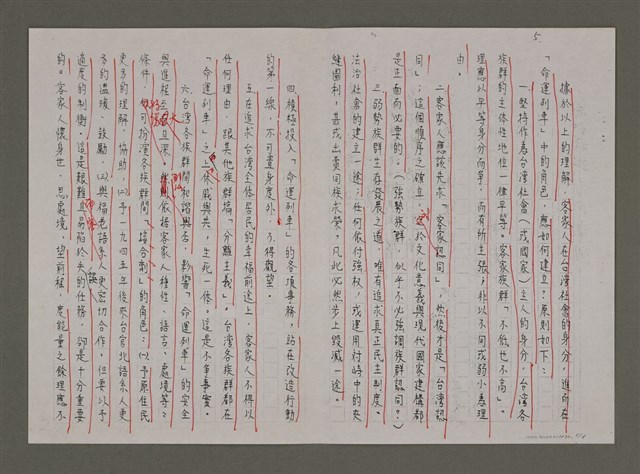 5.
據於以上的理解，客家人在台灣社會的身分，進而在
「命運列車」中的角色，應如何建立？原則如下：
一、堅持作為台灣社會（或國家）主人的身分。台灣各
族群的主体性地位一律平等。客家族群「不低也不高」。
理應以平等身分而爭，而有所主張；非以不同或弱小為理
由。
二、客家人應該先求「客家認同」，然後才是「台灣認
同」；這個順序之確立，在於文化意義與現代國家建構都
是正面而必要的。（強勢族群，似乎不必強調族群認同？）
三、弱勢族群生存發展之道，唯有追求真正民主制度。
法治社會的建立一途；任何依付強权，或運用対峙中的夾
縫圖利，甚或出賣同族求榮，凡此必然步上毀滅一途。
四、積極投入「命運列車」的各項事務，站在改造行動
的第一線，不可置身度外，不得觀望。
五、在追求台灣全体居民的幸福前途上，客家人不得以
任何理由，跟其他族群搞「分離主義」。台灣各族群都在
「命運列車」之上休戚與共，生死一体。這是不爭事實。
六、台灣各族群間和諧與否，影響「命運列車」的安全
與進程
條件，可扮演各族群間「接合劑」的角色：(一)予原住民
更多的理解、協助，(二)予一九四五年後來台官北語系人更
多的溫暖、鼓勵，(三)與福佬語系人更密切合作，但要以予
適度的制衡。這是艱難且易陷於失的任務，卻是十分重要
的。客家人懷身世，思處境，望前程，度能量之餘理應不